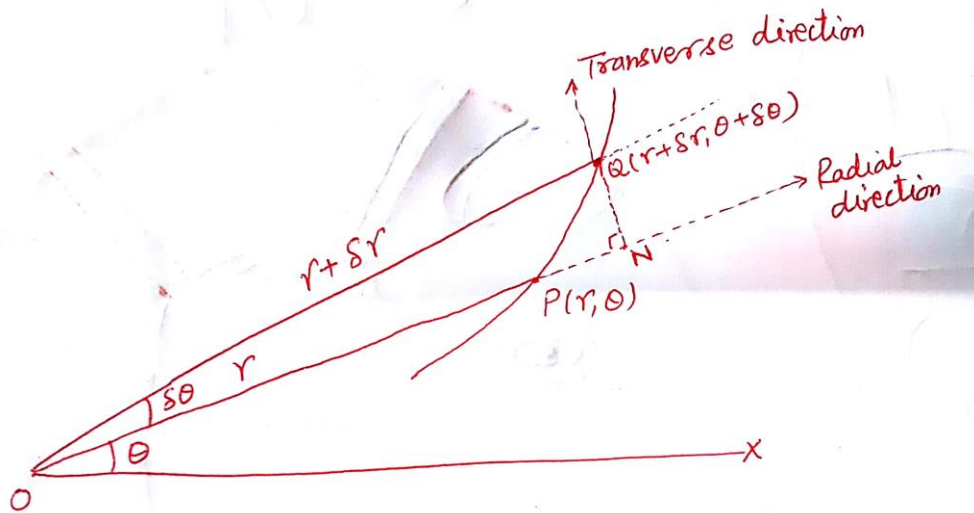 Transverse direction
Q(r+δr, θ+δθ)
Radial
direction
r+δr
N
P(r,θ)
r
δθ
θ
X
O